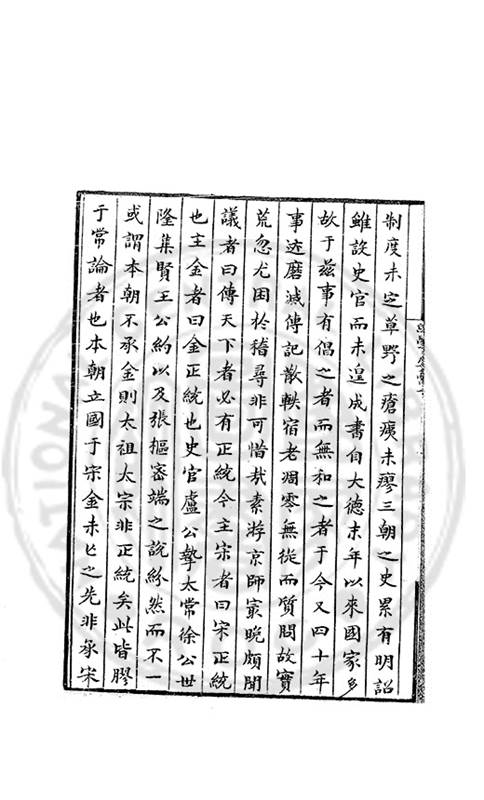 制度未定草野之瘡痍未瘳三朝之史累有明詔
雖設史官而未遑成書自大德末年以來國家多
故于兹事有倡之者而無和之者于今又四十年
事迹磨滅傳記散軼宿老凋零無從而質問故實
荒忽尤困於稽尋非可惜哉素游京師寂晚頗聞
議者曰傳天下者必有正統今主宋者曰宋正統
也主金者曰金正統也史官盧公摯太常徐公世
隆集賢王公約以及張樞密端之說紛然而不一
或謂本朝不承金則太祖太宗非正統矣此皆膠
于常論者也本朝立國于宋金未亡之先非承宋